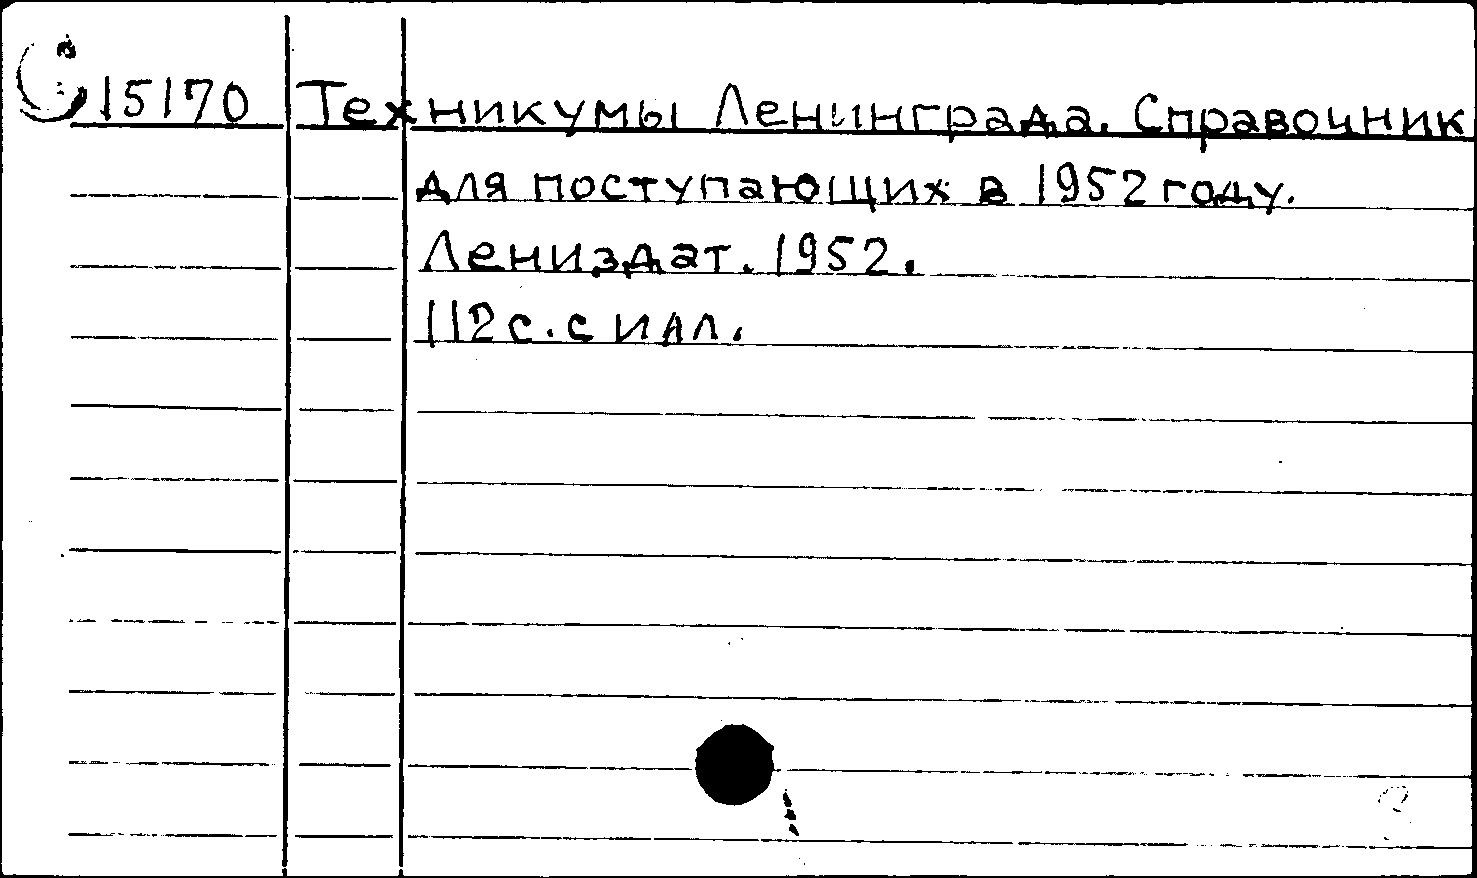 15170 Техникумы Ленинграда. Справочник
для поступающих в 1952 году.
Лениздат. 1952.
112 с. с илл.